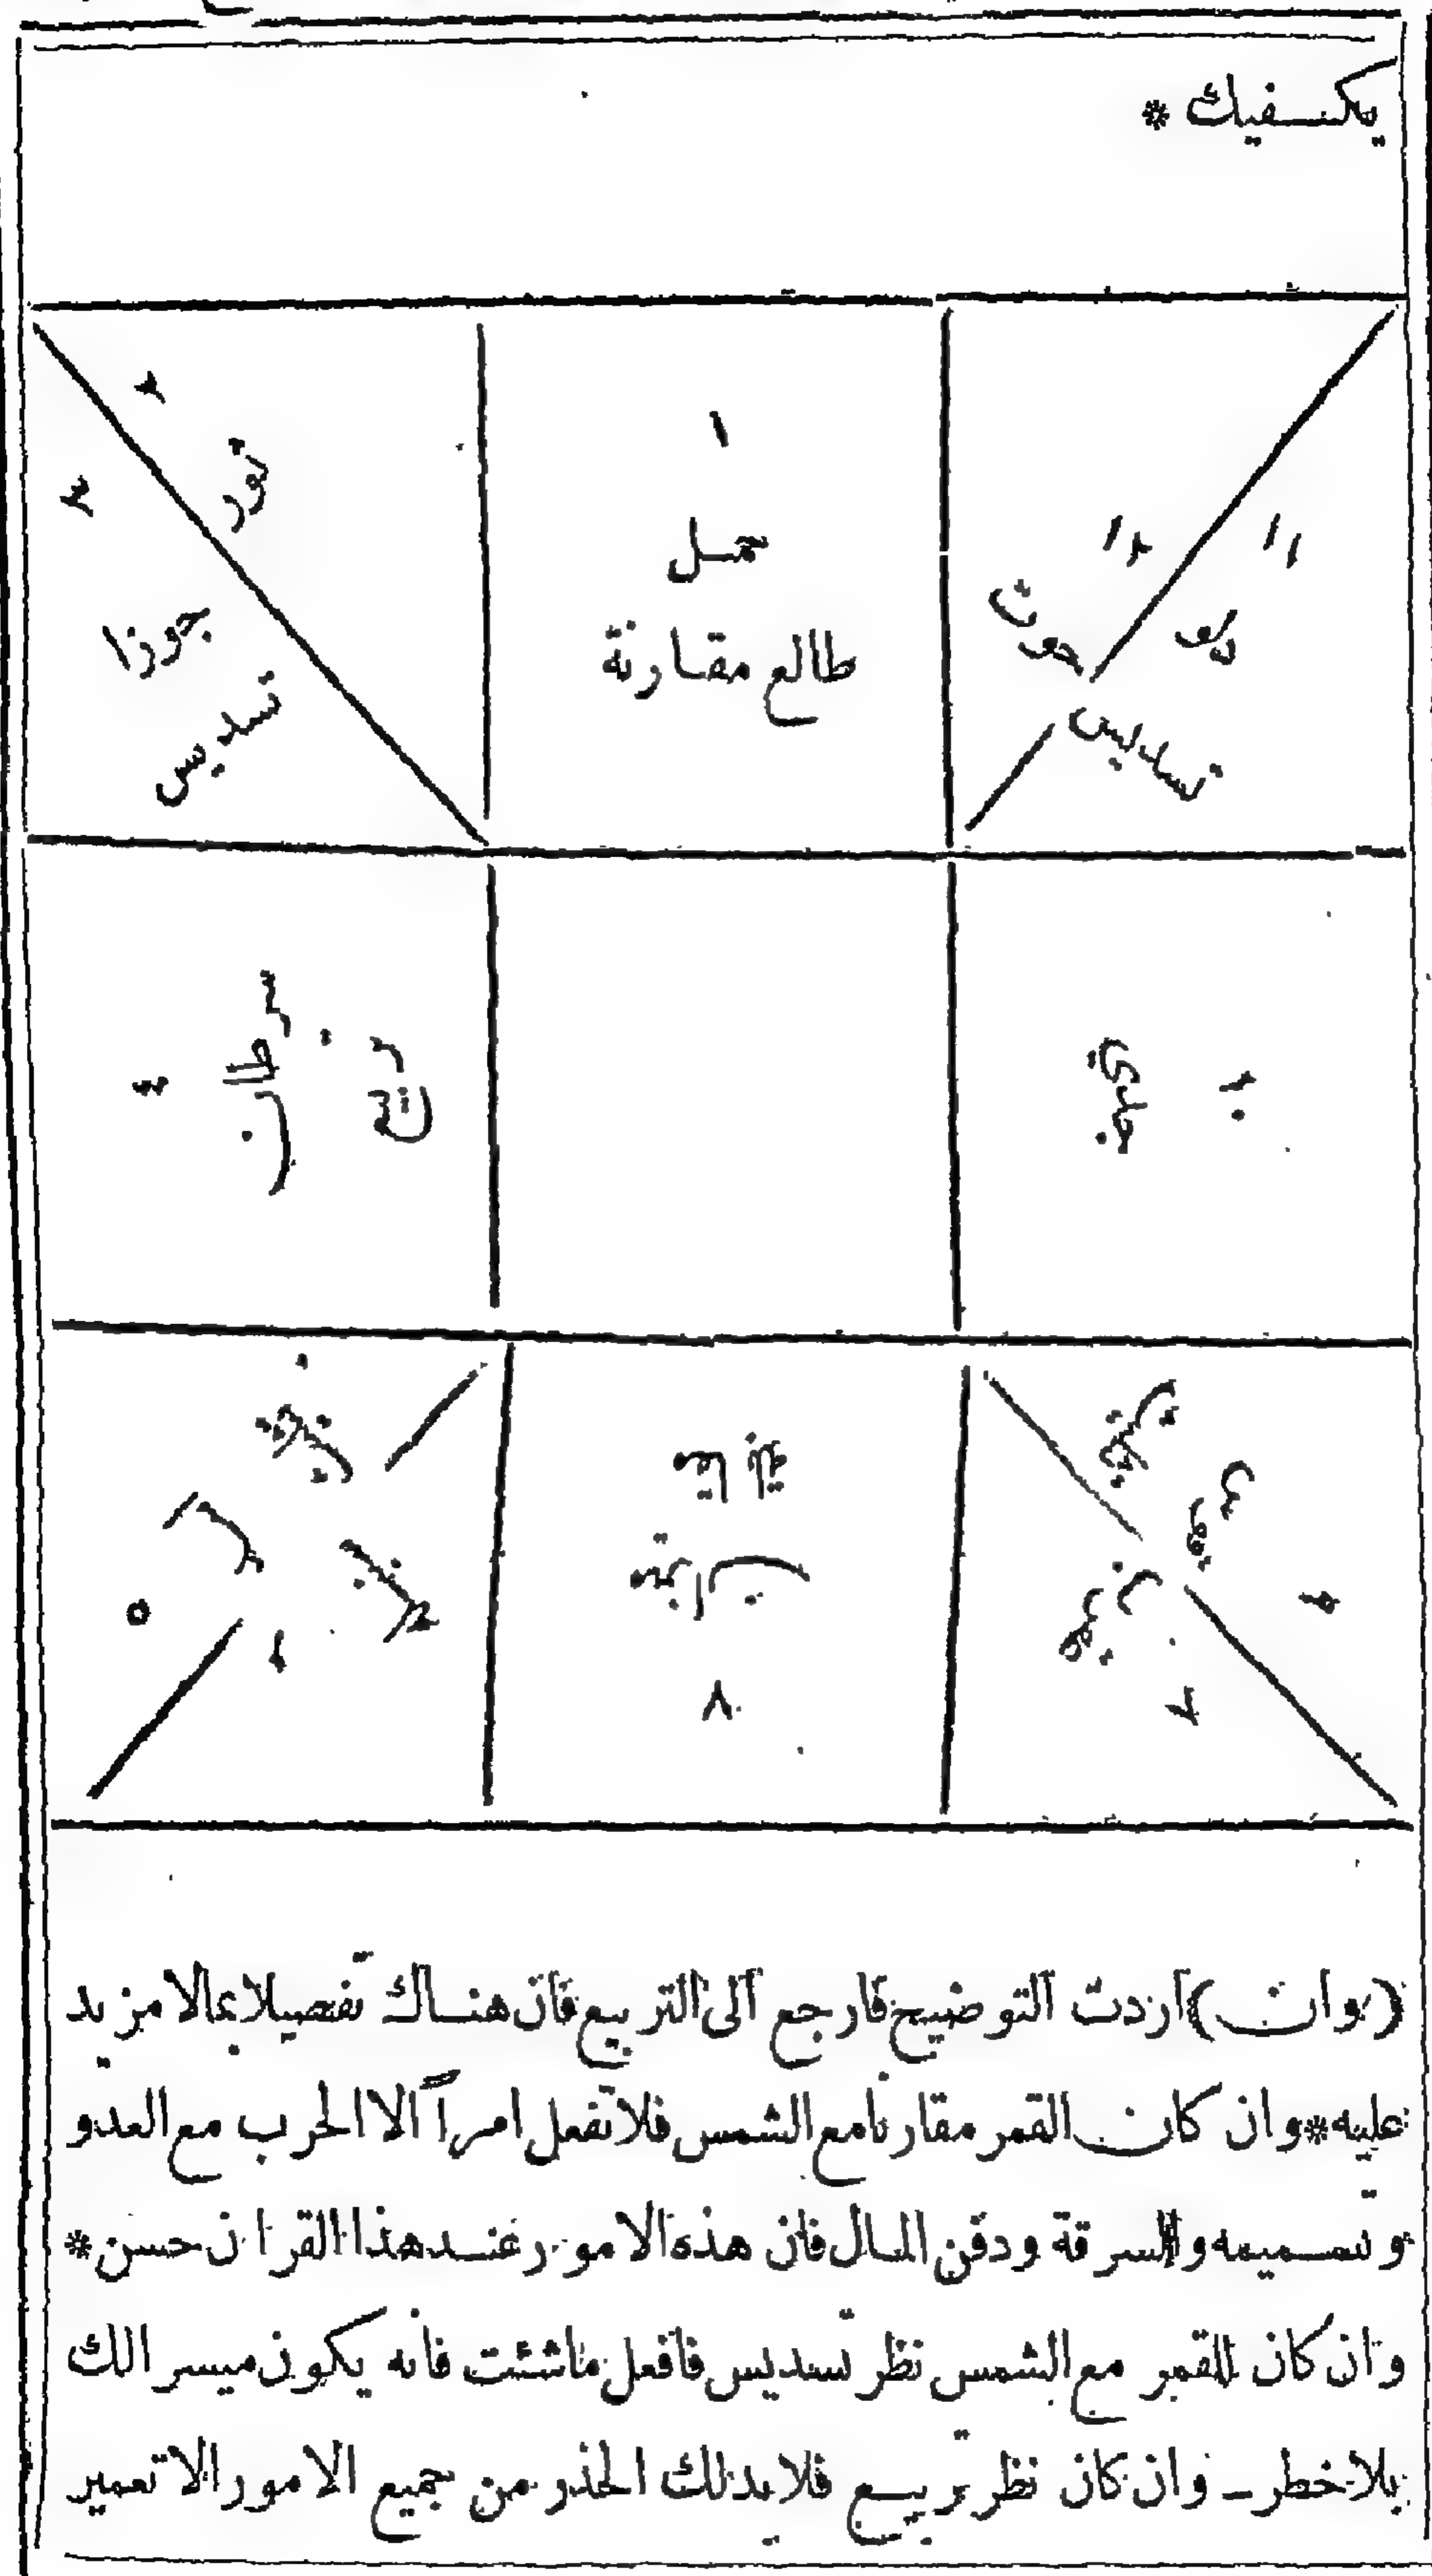 يكفيك *
١
حمل
طالع مقارنة
٢
ثور
٣
جوزا
تسديس
١٢
حوت
١١
دلو
تسديس
٤
سرطان
ربيع
١٠
جدي
٥
اسد
٦
ميزان
٨
قوس
٩
عقرب
٧
(وان) اردت التوضيح فارجع الى التربيع فان هناك تفصيلا بمالا مزيد
عليه * وان كان القمر مقارنا مع الشمس فلا تفعل امراً الا الحرب مع العدو
و تسميمه والسرقة ودفن المال فان هذه الامور عند هذا القران حسن *
وان كان للقمر مع الشمس نظر تسديس فافعل ماشئت فانه يكون ميسرا لك
بلا خطر ـ وان كان نظر تربيع فلا بد لك الحذر من جميع الامور الا تعمير